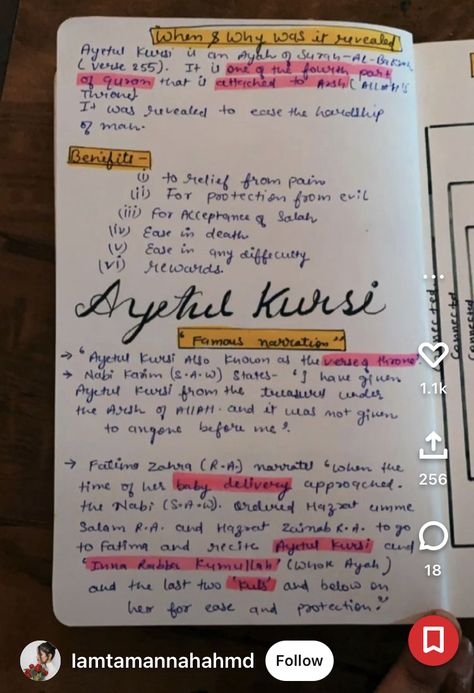 When & Why was it revealed
Ayetul Kursi is an Ayah of Surah-AL-Bakrah
(verse 255). It is one of the fourth part
of quron that is attached to Arsh (ALLAH's
Throne)
It was revealed to ease the hardship
of man.
Benefits -
(i) to relief from pain
(ii) For protection from evil
(iii) For Acceptance of Salah
(iv) Ease in death
(v) Ease in any difficulty
(vi) rewards.
Ayetul Kursi
"Famous narration"
→ "Ayetul Kursi Also known as the verse of throne".
→ Nabi Karim (S.A.W) States- "I have given
Ayetul Kursi from the treasures under
the Arsh of ALLAH. and it was not given
to anyone before me".
→ Fatima Zahra (R.A.) narrates "when the
time of her baby delivery approached.
the Nabi (S.A.W). Ordered Hazrat umme
Salam R.A. and Hazrat Zainab R.A. to go
to Fatima and recite Ayetul Kursi and
'Inna Rabba Kumullah' (Whole Ayah)
and the last two 'Kuls' and below on
her for ease and protection."
Connected
Connected
1.1k
256
18
Iamtamannahahmd
Follow